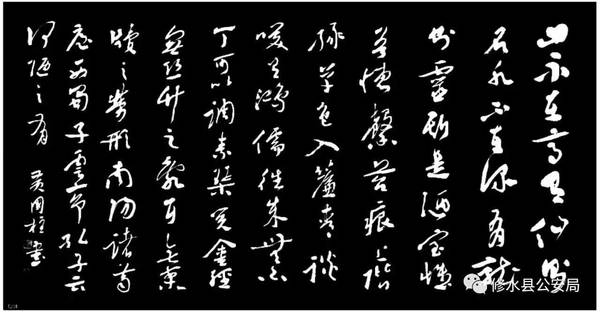 山不在高有仙则
名水不在深有龍
则靈斯是陋室惟
吾德馨苔痕上階
緑草色入簾青談
笑有鸿儒往来無白
丁可以调素琴阅金經
無丝竹之亂耳無案
牍之劳形南阳诸葛
庐西蜀子雲亭孔子云
何陋之有
修水县公安局